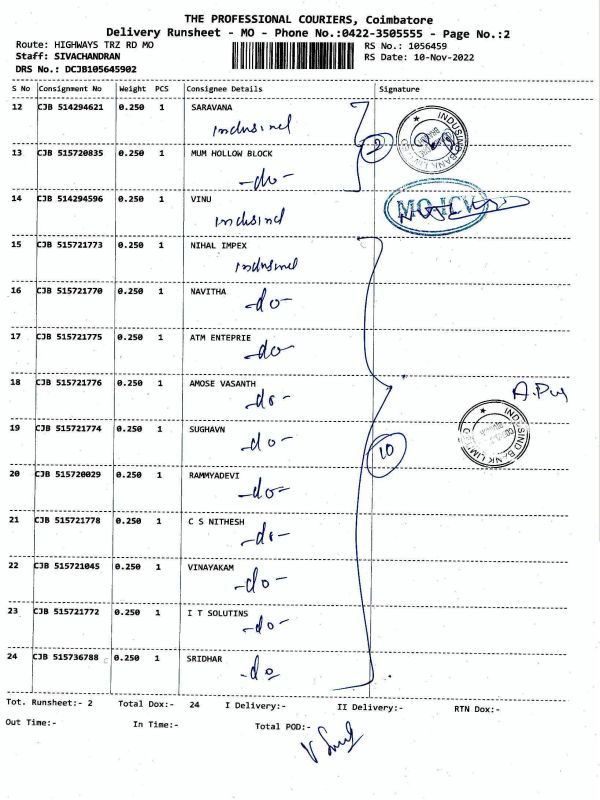 THE PROFESSIONAL COURIERS, Coimbatore
Delivery Runsheet - MO - Phone No.:0422-3505555 - Page No.:2
Route: HIGHWAYS TRZ RD MO
RS No.: 1056459
Staff: SIVACHANDRAN
RS Date: 10-Nov-2022
DRS No.: DCJB105645902
S No Consignment No Weight PCS Consignee Details Signature
12 CJB 514294621 0.250 1 SARAVANA
Indusind
13 CJB 515720835 0.250 1 MUM HOLLOW BLOCK
-do-
INDUSIND BANK LIMITED
14 CJB 514294596 0.250 1 VINU
Indusind
15 CJB 515721773 0.250 1 NIHAL IMPEX
Indusind
16 CJB 515721770 0.250 1 NAVITHA
-do-
17 CJB 515721775 0.250 1 ATM ENTEPRIE
-do-
18 CJB 515721776 0.250 1 AMOSE VASANTH
-do-
19 CJB 515721774 0.250 1 SUGHAVN
-do-
10
INDUSIND BANK LIMITED
20 CJB 515720029 0.250 1 RAMMYADEVI
-do-
21 CJB 515721778 0.250 1 C S NITHESH
-do-
22 CJB 515721045 0.250 1 VINAYAKAM
-do-
23 CJB 515721772 0.250 1 I T SOLUTINS
-do-
24 CJB 515736788 0.250 1 SRIDHAR
-do
Tot. Runsheet:- 2 Total Dox:- 24 I Delivery:- II Delivery:- RTN Dox:-
Out Time:- In Time:- Total POD:-